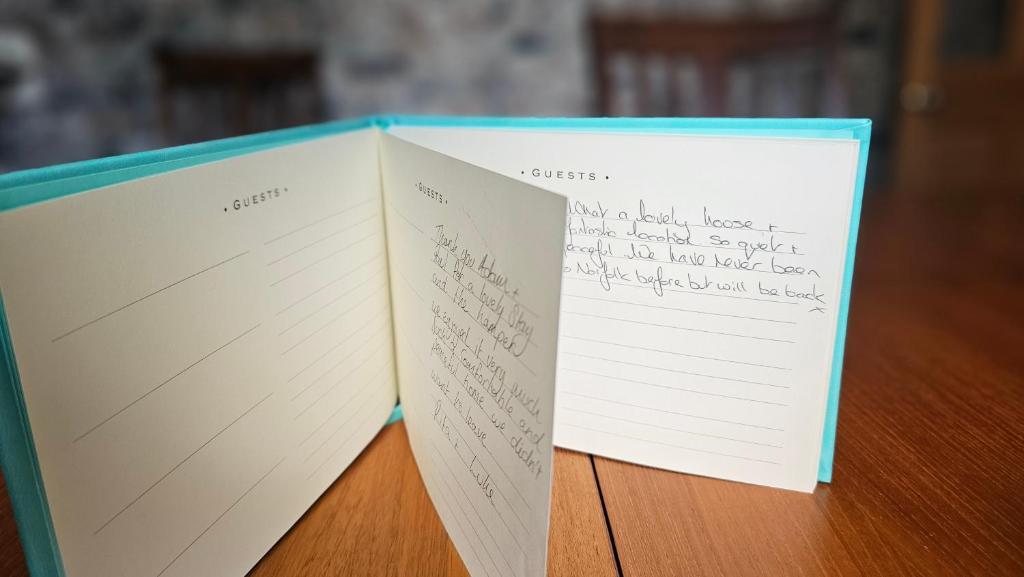 • GUESTS •
• GUESTS •
Thank you Adam +
for a lovely stay
and the hamper
we enjoyed it very much
comfortable and
peaceful home we didn't
want to leave
Rita + Luke
• GUESTS •
What a lovely house +
fantastic location so quiet +
peaceful. We have never been
to Norfolk before but will be back
x